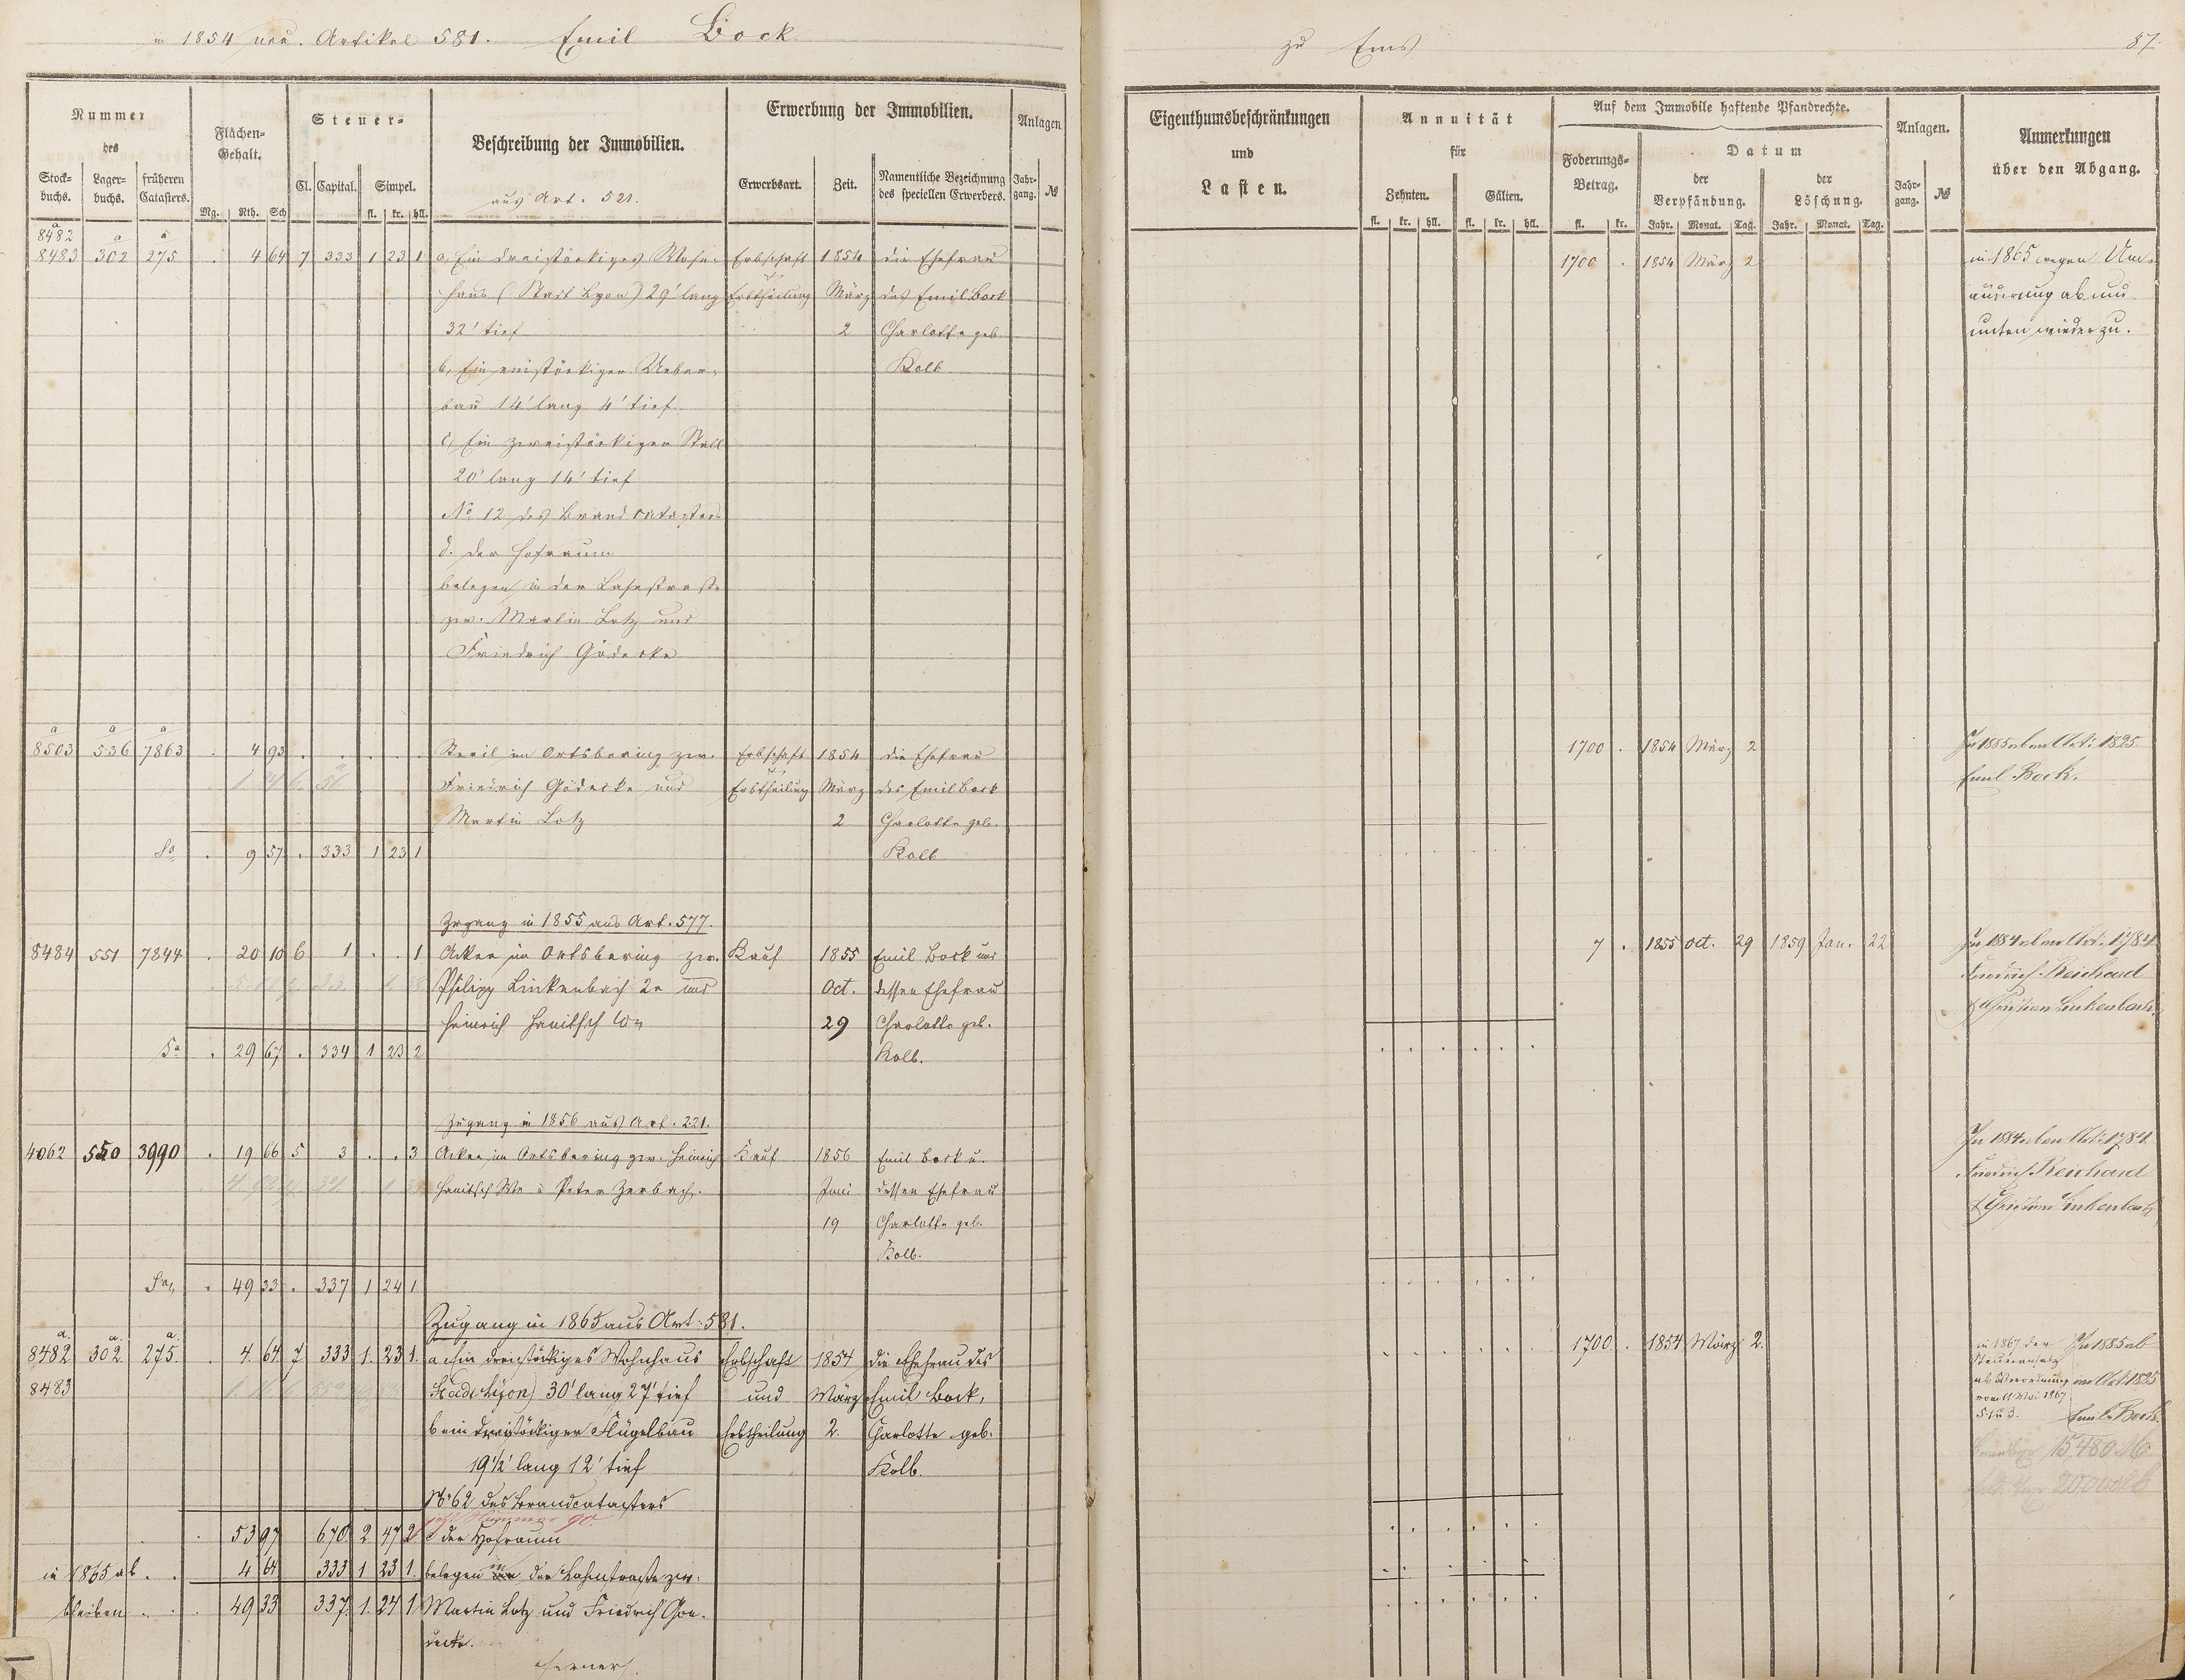 in 1854 neu. Artikel 581. Emil Bock
zu Ems 87.
Nummer des
Stock-buchs. Lager-buchs. früheren Catasters.
Flächen-Gehalt.
Mg. Rth. Sch
Steuer-
Cl. Capital. Simpel.
fl. kr. hll.
Beschreibung der Immobilien.
aus Art. 521.
Erwerbung der Immobilien.
Erwerbsart. Zeit. Namentliche Bezeichnung des speciellen Erwerbers.
Anlagen
Jahr-gang. №
Eigenthumsbeschränkungen
und
Lasten.
Annuität
für
Zehnten. Gülten.
fl. kr. hll. fl. kr. hll.
Auf dem Immobile haftende Pfandrechte.
Foderungs-Betrag.
fl. kr.
Datum
der Verpfändung. der Löschung.
Jahr. Monat. Tag. Jahr. Monat. Tag.
Anlagen.
Jahr-gang. №
Anmerkungen
über den Abgang.
a
8482 a a
8483 302 275 . 4 64 7 333 1 23 1 a, Ein dreistöckiges Wohn- Erbschaft 1854 die Ehefrau 1700 . 1854 März 2 in 1865 wegen Um-
haus (Stadt Lyon) 29' lang Erbtheilung März des Emil Bock änderung ab und
32' tief 2 Charlotte geb. unten wieder zu.
b, Ein einstöckiger Ueber- Kolb
bau 14' lang 4' tief
c, Ein zweistöckiger Stall
20' lang 14' tief
No 12 des Brandcatasters
d. der Hofraum
belegen in der Lahnstraße
zw. Martin Lotz und
Friedrich Gödecke
a a a
8503 536 7863 . 4 93 . . . . . Theil im Ortsbering zw. Erbschaft 1854 die Ehefrau 1700 . 1854 März 2 In 1885 ab Art: 1825
Friedrich Gödecke und Erbtheilung März des Emil Bock Emil Bock.
Martin Lotz 2 Charlotte geb.
Sa . 9 57 . 333 1 23 1 Kolb
Zugang in 1855 aus Art. 577.
8484 551 7844 . 20 10 6 1 . . 1 Acker im Ortsbering zw. Kauf 1855 Emil Bock und 7 . 1855 Oct. 29 1859 Jan. 22 In 1884 Art. 1784
Philipp Linkenbach 2r und Oct. dessen Ehefrau Friedrich Reinhard
Heinrich Hanitsch Ww 29 Charlotte geb. & Christian Linkenbach
Sa . 29 67 . 334 1 23 2 Kolb.
Zugang in 1856 aus Art. 221.
4062 550 3990 . 19 66 5 3 . . 3 Acker im Ortsbering zw. Heinrich Kauf 1856 Emil Bock u. In 1884 Art: 1784
Hanitsch We u Peter Zerbach. Juni dessen Ehefrau Friedrich Reinhard
19 Charlotte geb. & Christian Linkenbach
Kolb.
Sa . 49 33 . 337 1 24 1
Zugang in 1865 aus Art: 581.
a. a. a.
8482 302. 275. . 4. 64 7 333 1. 23 1. a ein dreistöckiges Wohnhaus Erbschaft 1854 die Ehefrau des 1700. . 1854 März 2. in 1867 der In 1885 ab
8483 Stadt Lyon) 30' lang 27' tief und März Emil Bock, Steueransatz
b ein dreistöckiger Flügelbau Erbtheilung 2. Charlotte geb. ab Verordnung Art. 1825
19½' lang 12' tief Kolb. vom 11 Mai 1867 Emil Bock.
No 62 des Brandcatasters 15480 M
jetzt Nummer 90.
. 53 97 670. 2. 47 2 der Hofraum
in 1865 ab . . 4 64 333 1 23 1. belegen in der Lahnstraße zw.
bleiben . . . 49 33 337. 1. 24 1 Martin Lotz und Friedrich Goe-
decke.